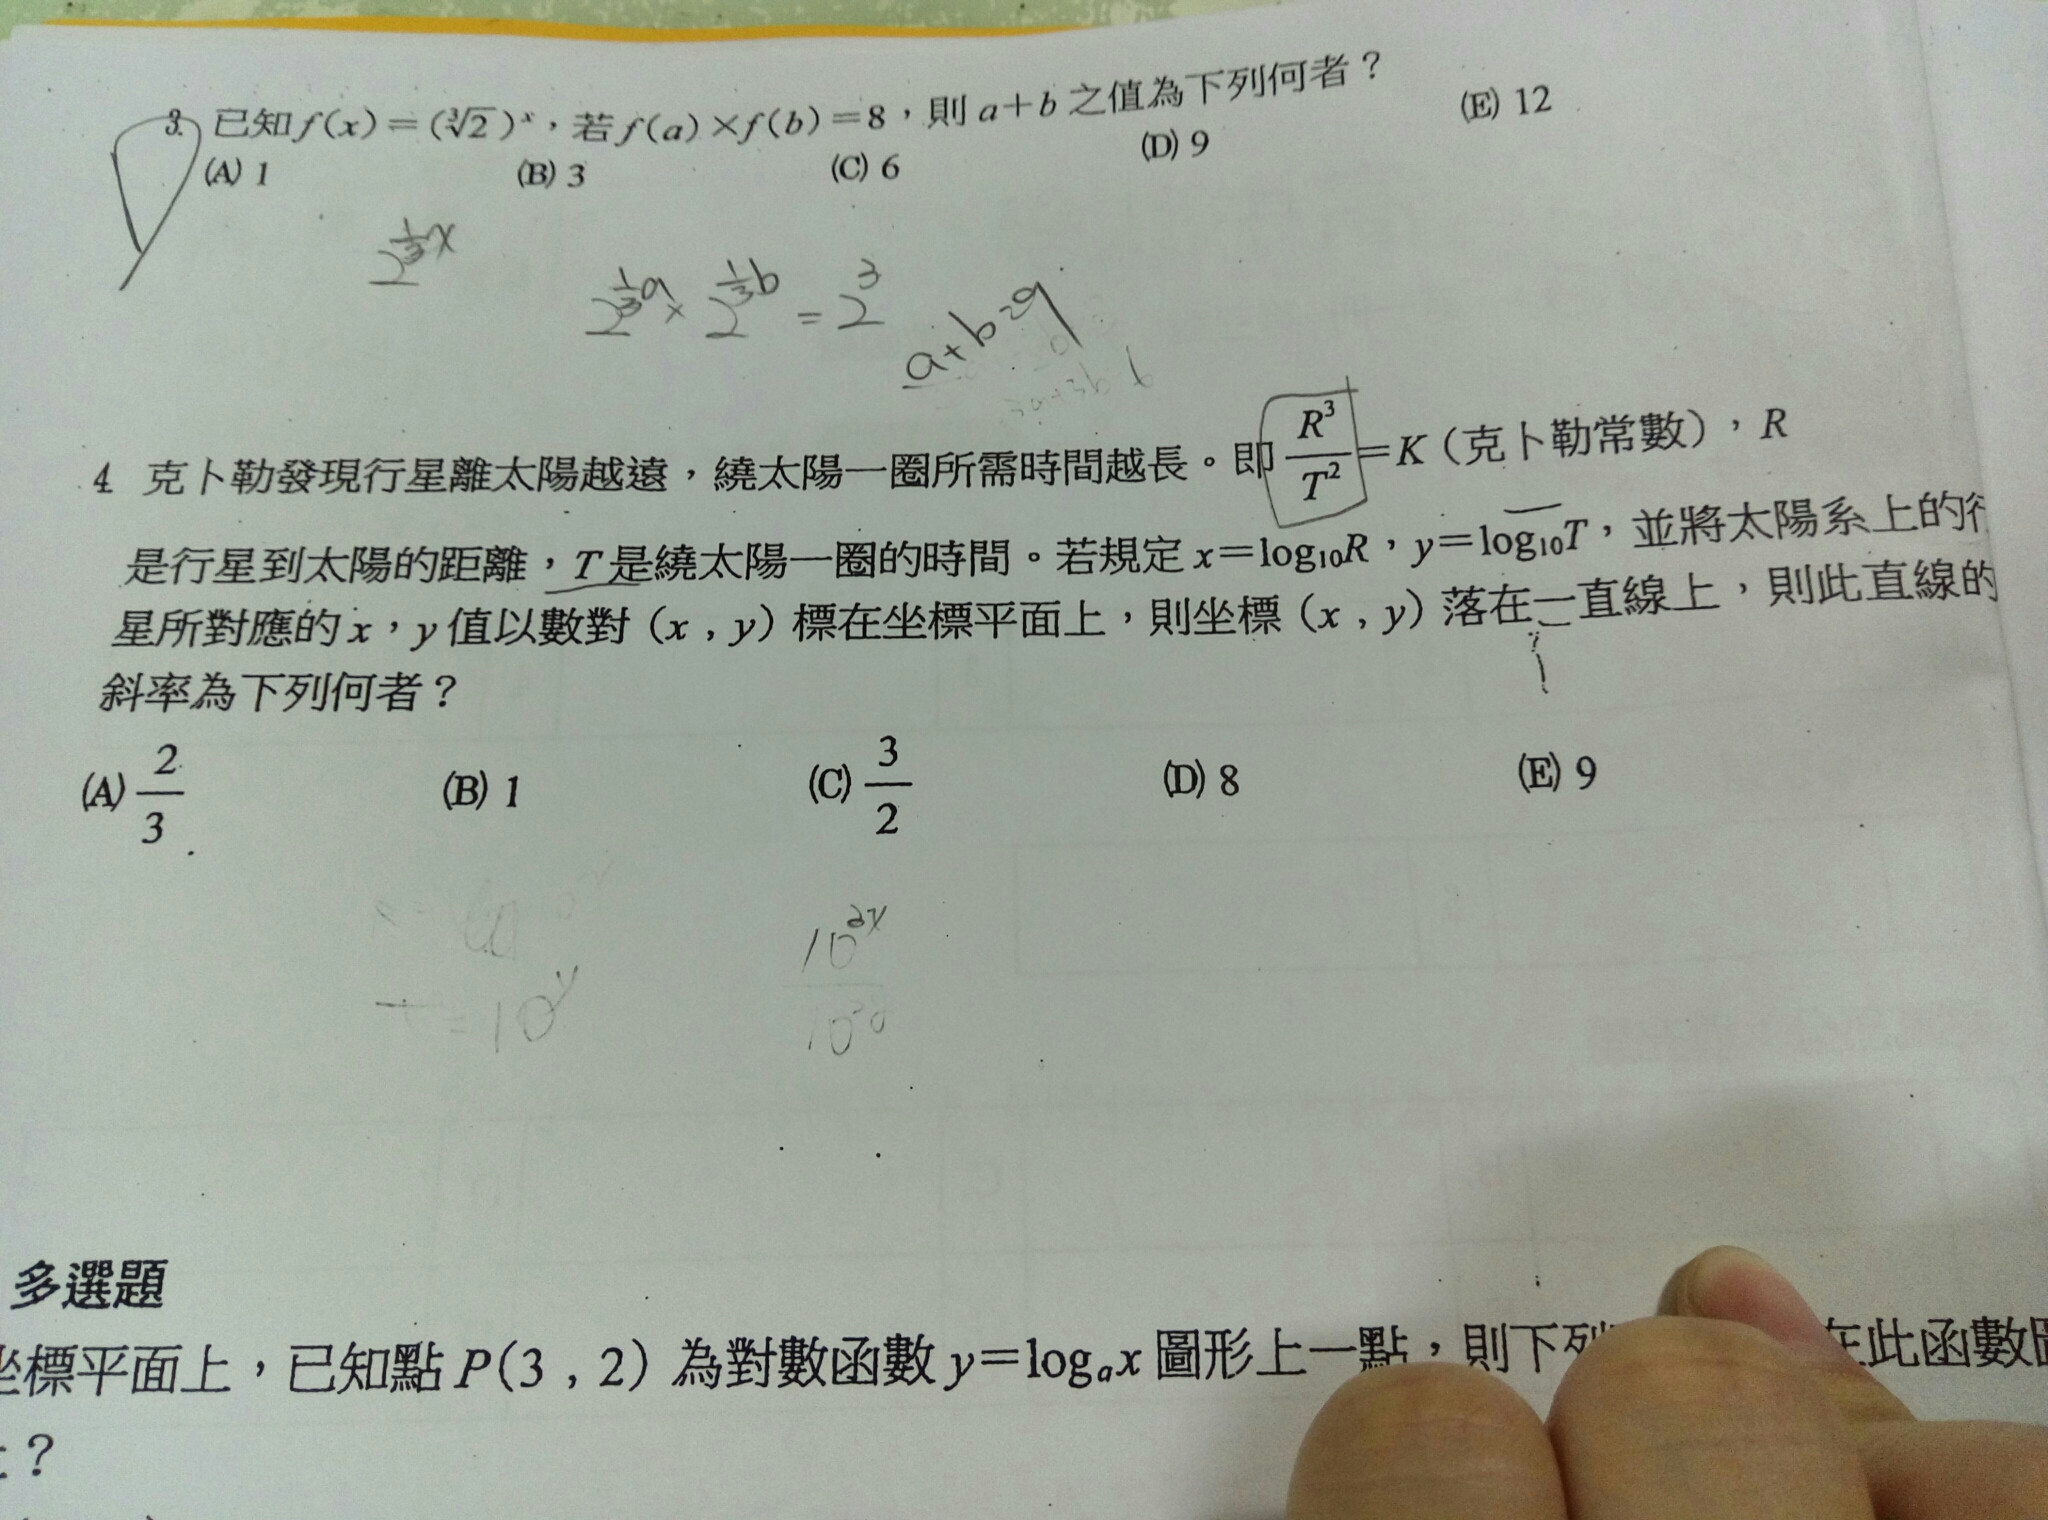 3. 已知 f(x)=(∛2)ˣ，若 f(a)×f(b)=8，則 a+b 之值為下列何者？
(A) 1 (B) 3 (C) 6 (D) 9 (E) 12
2^{\frac{1}{3}x}
2^{\frac{1}{3}a} × 2^{\frac{1}{3}b} = 2^3
a+b=9
4 克卜勒發現行星離太陽越遠，繞太陽一圈所需時間越長。即 \frac{R^3}{T^2}=K（克卜勒常數），R
是行星到太陽的距離，T 是繞太陽一圈的時間。若規定 x=log₁₀R，y=log₁₀T，並將太陽系上的行
星所對應的 x，y 值以數對（x , y）標在坐標平面上，則坐標（x , y）落在一直線上，則此直線的
斜率為下列何者？
(A) \frac{2}{3} (B) 1 (C) \frac{3}{2} (D) 8 (E) 9
T=10^y
多選題
坐標平面上，已知點 P(3 , 2) 為對數函數 y=logₐx 圖形上一點，則下列 在此函數圖
？